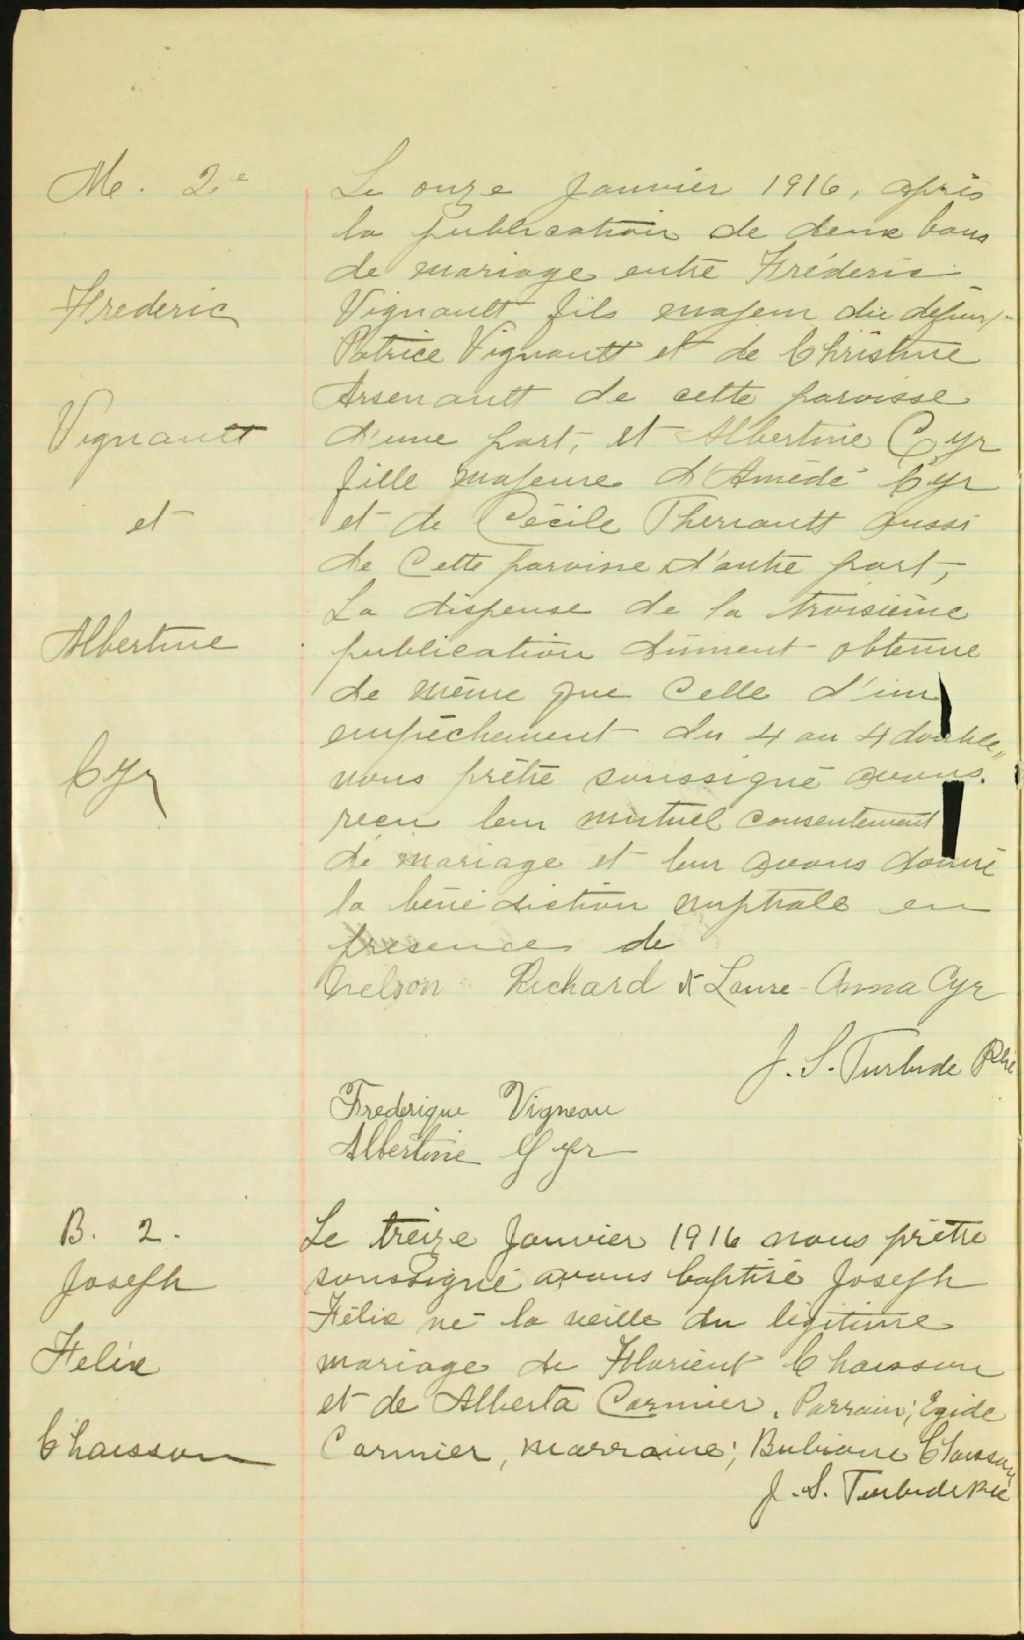 M. 2e
Frederic
Vignault
et
Albertine
Cyr
Le onze Janvier 1916, après
la publication de deux bans
de mariage entre Fréderic
Vignault fils majeur du défunt
Patrice Vignault et de Christine
Arsenault de cette paroisse
d'une part, et Albertine Cyr
fille majeure d'Amédé Cyr
et de Cécile Theriault aussi
de cette paroisse d'autre part,
La dispense de la troisième
publication dûment obtenue
de même que celle d'un
empêchement du 4 au 4 double,
nous prêtre soussigné avons
reçu leur mutuel consentement
de mariage et leur avons donné
la bénédiction nuptiale en
présence de
Nelson Richard & Laure-Anna Cyr
J. S. Turbide Ptre
Frederique Vigneau
Albertine Cyr
B. 2.
Joseph
Felix
Chaisson
Le treize Janvier 1916 nous prêtre
soussigné avons baptisé Joseph
Félix né la veille du légitime
mariage de Florient Chaisson
et de Alberta Cormier. Parrain; Egide
Cormier, marraine; Bibiane Chaisson
J. S. Turbide Ptre